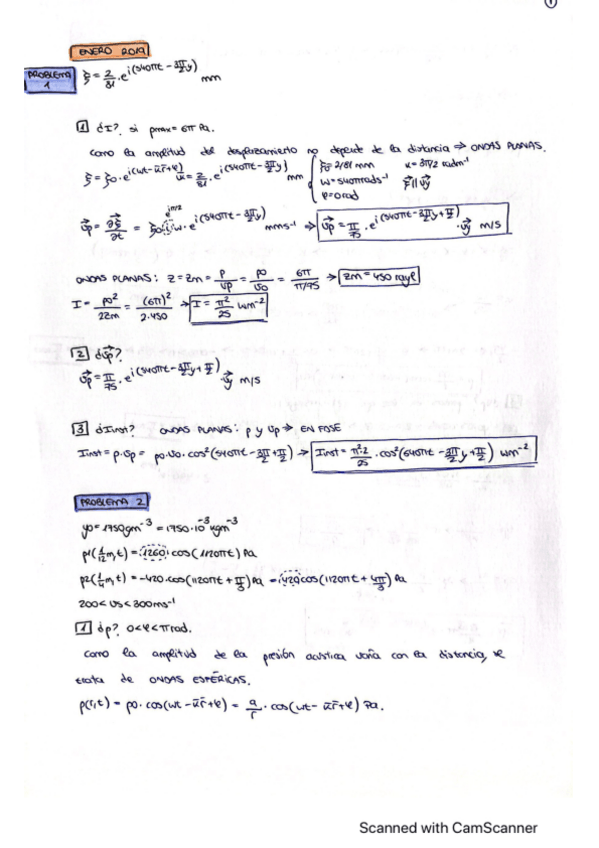 1
ENERO 2019
PROBLEMA 1
ξ = 2/81 · e^i(540πt - 3π/2 y) mm
1 ¿I?. si pmax = 6π Pa.
Como la amplitud del desplazamiento no depende de la distancia ⇒ ONDAS PLANAS.
ξ = ξ0 · e^i(wt - ūr + φ) = 2/81 · e^i(540πt - 3π/2 y) mm
ξ0 = 2/81 mm u = 3π/2 radm⁻¹
w = 540π rads⁻¹ ξ ∥ uy
φ = 0 rad
Up = ∂ξ/∂t = ξ0 · i · w · e^i(540πt - 3π/2 y) mms⁻¹ ⇒ Up = π/75 · e^i(540πt - 3π/2 y + π/2) · uy m/s
e^jπ/2
ONDAS PLANAS: Z = Zm = P/Up = p0/U0 = 6π/(π/75) → Zm = 450 rayl
I = p0²/2Zm = (6π)²/2·450 → I = π²/25 wm⁻²
2 ¿Up?.
Up = π/75 · e^i(540πt - 3π/2 y + π/2) · uy m/s
3 ¿Inst? ONDAS PLANAS: p y Up ⇒ EN FASE
Inst = p · Up = p0 · U0 · cos²(540πt - 3π/2 + π/2) → Inst = π²·2/25 · cos²(540πt - 3π/2 y + π/2) wm⁻²
PROBLEMA 2
γ0 = 1750 gm⁻³ = 1750·10⁻³ kgm⁻³
p1(1/12 m, t) = 1260 cos(1120πt) Pa
p2(1/4 m, t) = -420 cos(1120πt + π/3) Pa = 420 cos(1120πt + 4π/3) Pa
200 < Us < 300 ms⁻¹
1 ¿p? 0 < φ < π rad.
Como la amplitud de la presión acústica varía con la distancia, se
trata de ONDAS ESFÉRICAS.
p(r,t) = p0 · cos(wt - ūr̄ + φ) = a/r · cos(wt - ūr̄ + φ) Pa.
Scanned with CamScanner